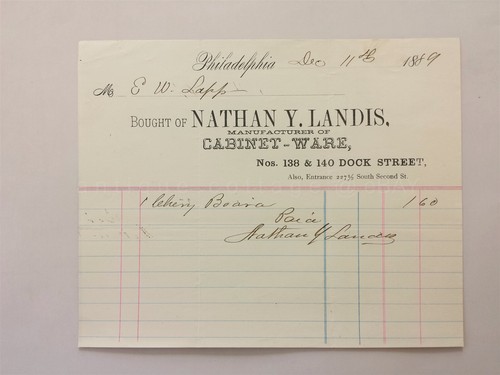 Philadelphia Dec 11th 1889
M E W. Lapp
BOUGHT OF NATHAN Y. LANDIS,
MANUFACTURER OF
CABINET-WARE,
Nos. 138 & 140 DOCK STREET,
Also, Entrance 227½ South Second St.
1 Cherry Board 1 60
Paid
Nathan Y Landis